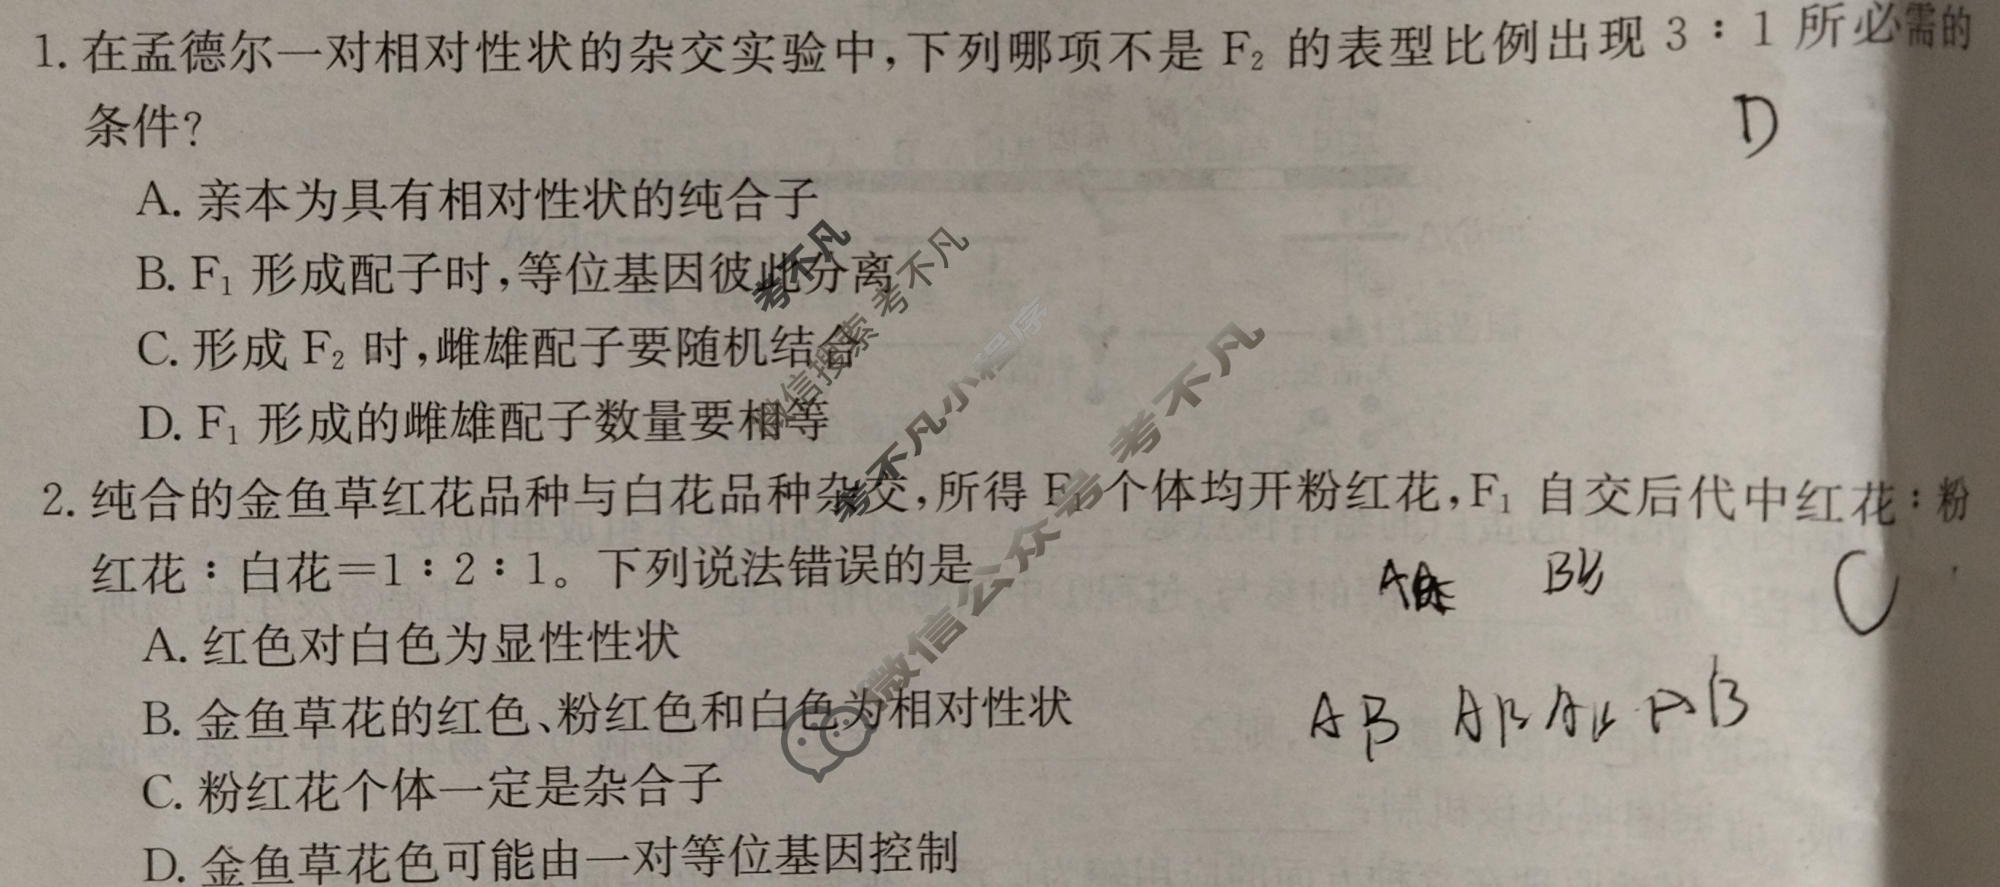 1. 在孟德尔一对相对性状的杂交实验中,下列哪项不是 F₂ 的表型比例出现 3∶1 所必需的
条件?
D
A. 亲本为具有相对性状的纯合子
B. F₁ 形成配子时,等位基因彼此分离
C. 形成 F₂ 时,雌雄配子要随机结合
D. F₁ 形成的雌雄配子数量要相等
2. 纯合的金鱼草红花品种与白花品种杂交,所得 F₁ 个体均开粉红花,F₁ 自交后代中红花∶粉
红花∶白花=1∶2∶1。下列说法错误的是
C
A. 红色对白色为显性性状
B. 金鱼草花的红色、粉红色和白色为相对性状
C. 粉红花个体一定是杂合子
D. 金鱼草花色可能由一对等位基因控制
考不凡
微信搜索 考不凡
考不凡小程序
微信公众号 考不凡